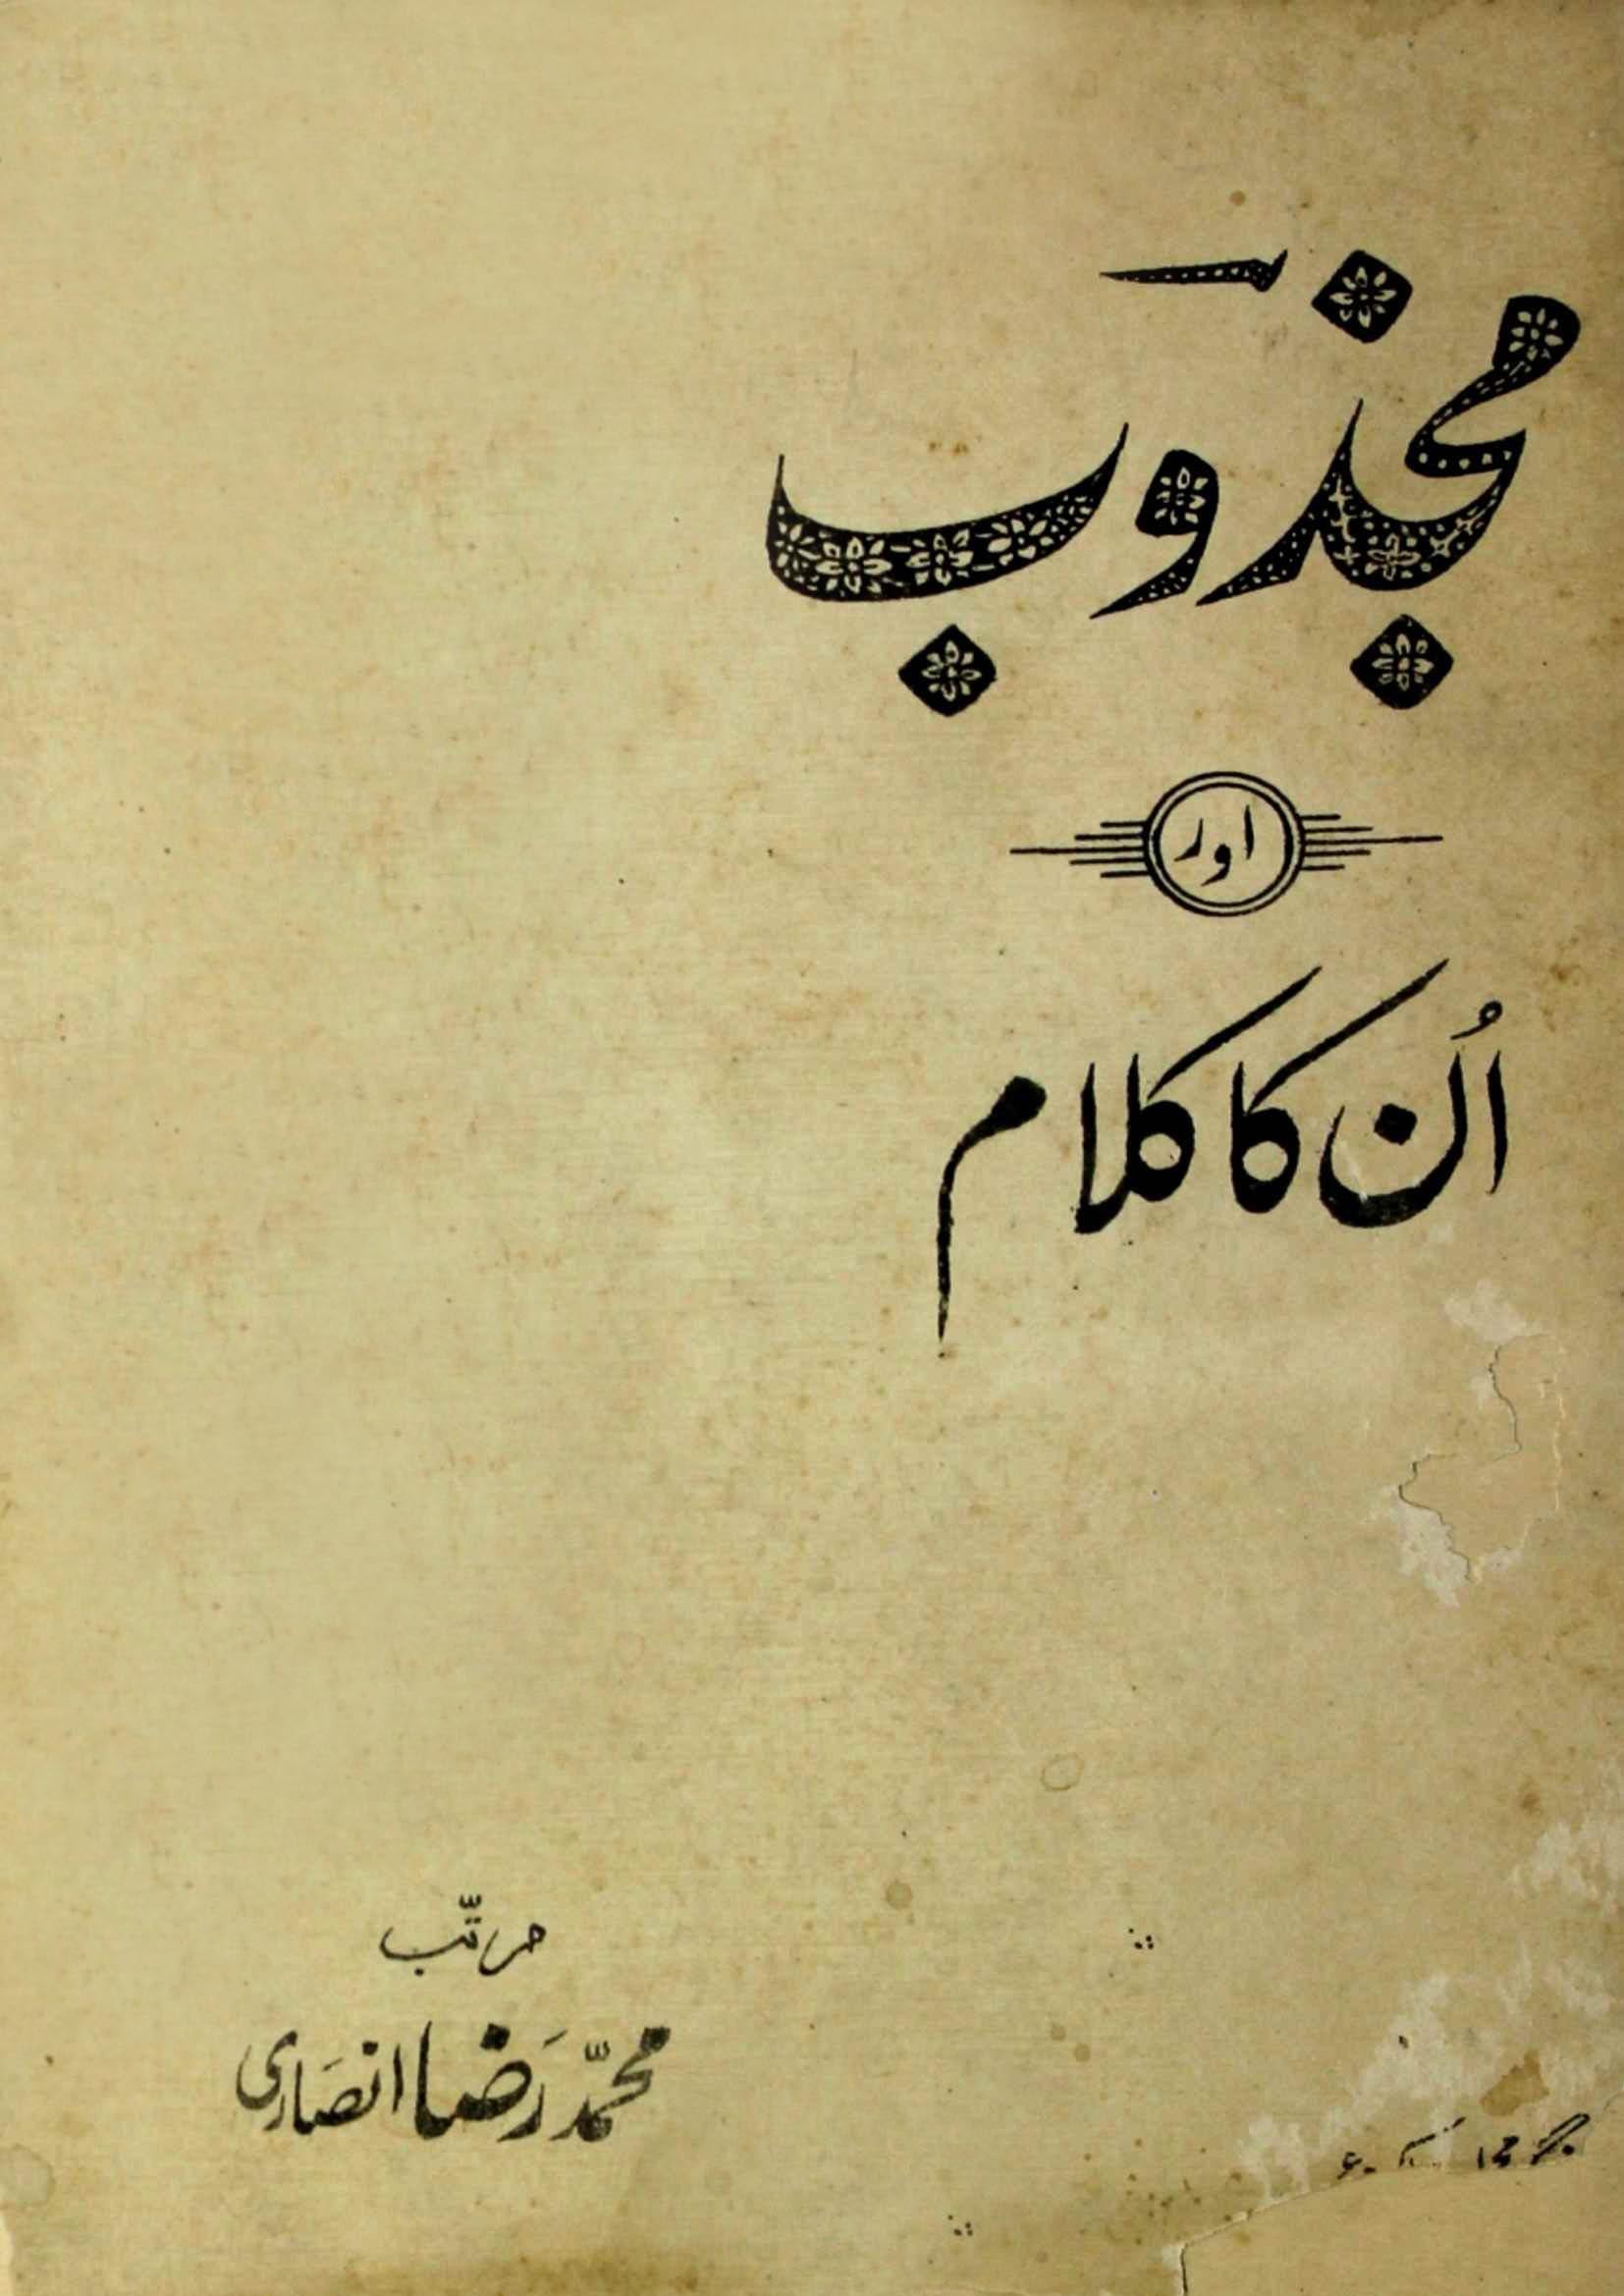 مجذوب
اور
اُن کا کلام
مرتّب
محمّد رَضا انصَاری